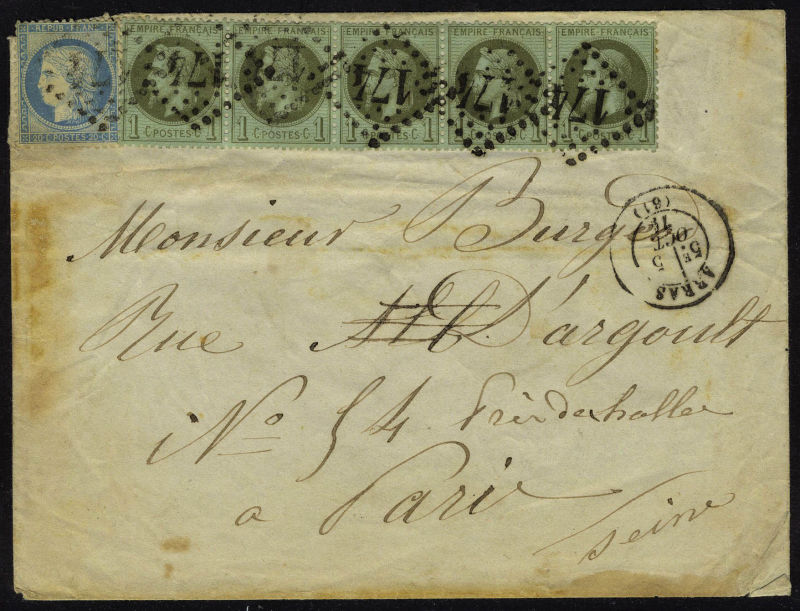 REPUB · FRANC ·
20 · C · POSTES · 20 · C
EMPIRE FRANÇAIS
1 CPOSTES·C 1
174
EMPIRE FRANÇAIS
1 CPOSTES·C 1
EMPIRE FRANÇAIS
1 CPOSTES·C 1
174
EMPIRE FRANÇAIS
1 CPOSTES·C 1
174
EMPIRE FRANÇAIS
1 CPOSTES·C 1
174
ARRAS
5E
5
OCT.
71
(61)
Monsieur Burg
Rue D'argoult
No 54 Près des halles
a Paris
Seine